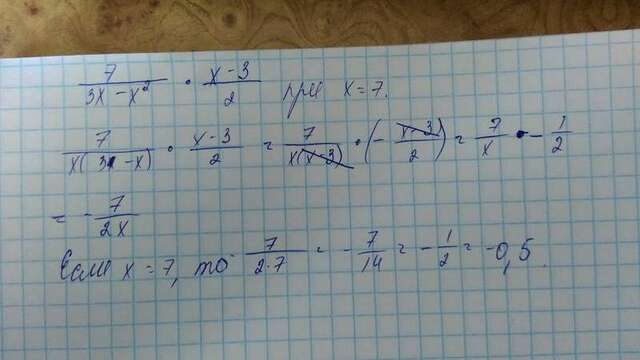 7/(3x - x²) · (x - 3)/2 при x = 7.
7/(x(3 - x)) · (x - 3)/2 = 7/(x(x - 3)) · (- (x - 3)/2) = 7/x · - 1/2
= - 7/(2x)
Если x = 7, то 7/(2·7) = - 7/14 = - 1/2 = -0,5